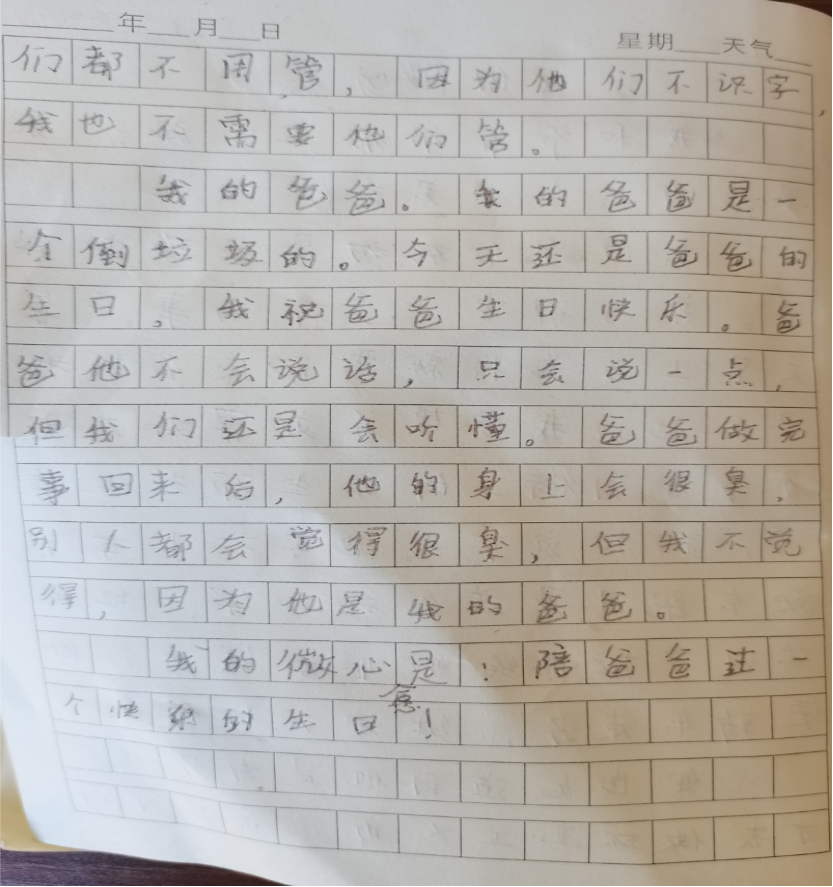 年 月 日
星期 天气
们都不用管，因为他们不识字，
我也不需要他们管。
我的爸爸。我的爸爸是一
个倒垃圾的。今天还是爸爸的
生日，我祝爸爸生日快乐。爸
爸他不会说话，只会说一点，
但我们还是会听懂。爸爸做完
事回来后，他的身上会很臭，
别人都会觉得很臭，但我不觉
得，因为他是我的爸爸。
我的微心愿是：陪爸爸过一
个快乐的生日！